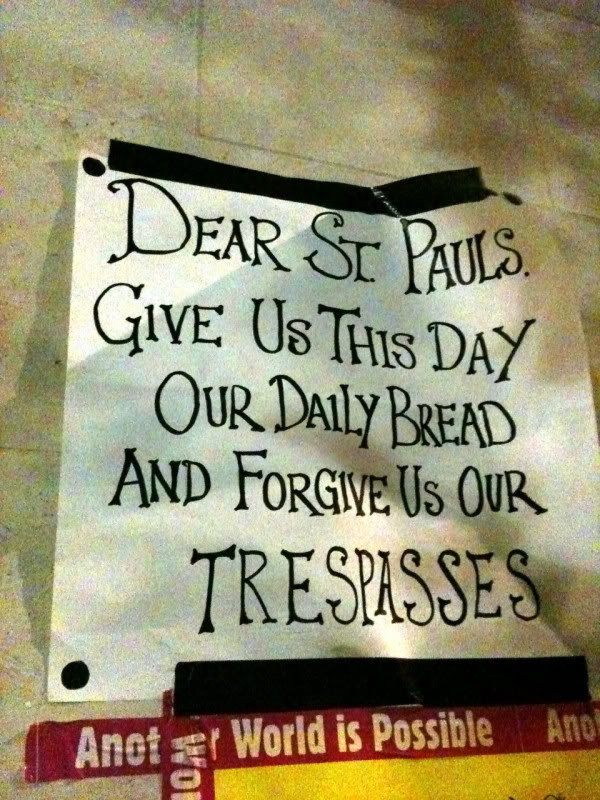 DEAR ST PAULS.
GIVE US THIS DAY
OUR DAILY BREAD
AND FORGIVE US OUR
TRESPASSES
Anot r World is Possible Ano
Wo